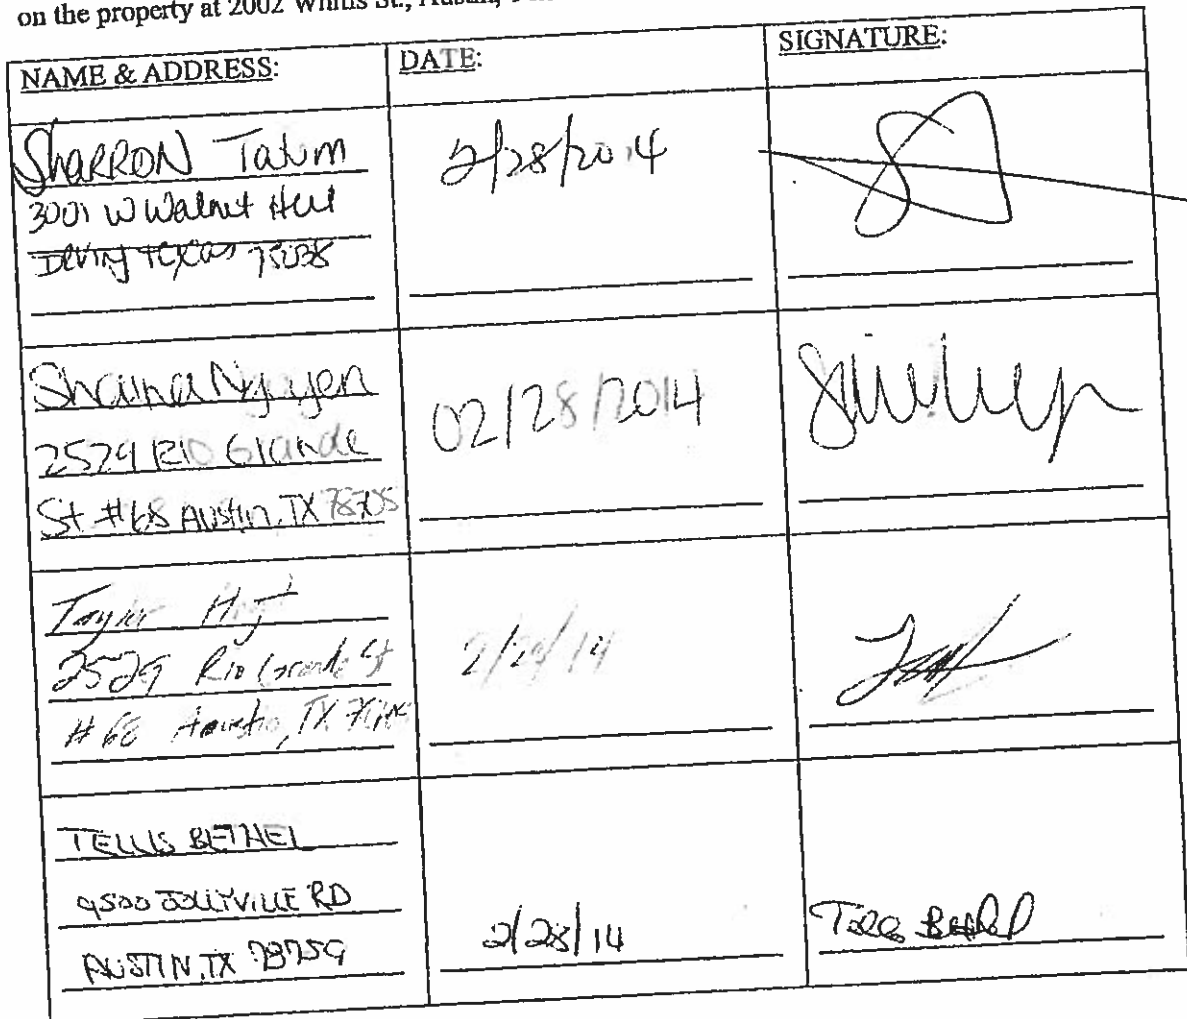 on the property at 2002 Whitis St., Austin,
NAME & ADDRESS:
DATE:
SIGNATURE:
SHARRON Tatum
3001 W Walnut Hill
Irving Texas 75038
2/28/2014
Shaina Nguyen
2529 RIO Grande
St #68 Austin, TX 78705
02/28/2014
Taylor
2529 Rio Grande St
#68 Austin, TX
2/28/14
TELLIS BETHEL
9500 JOLLYVILLE RD
AUSTIN, TX 78759
2/28/14
Tellis Bethel